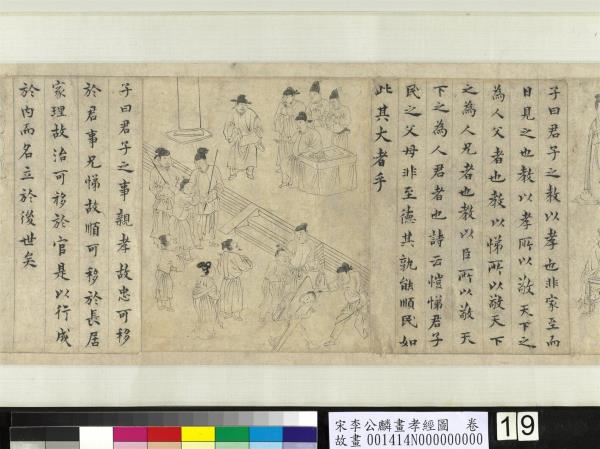 子曰君子之教以孝也非家至而
日見之也教以孝所以敬天下之
為人父者也教以悌所以敬天下
之為人兄者也教以臣所以敬天
下之為人君者也詩云愷悌君子
民之父母非至德其孰能順民如
此其大者乎
子曰君子之事親孝故忠可移
於君事兄悌故順可移於長居
家理故治可移於官是以行成
於內而名立於後世矣
宋李公麟畫孝經圖 卷
故畫 001414N000000000
19